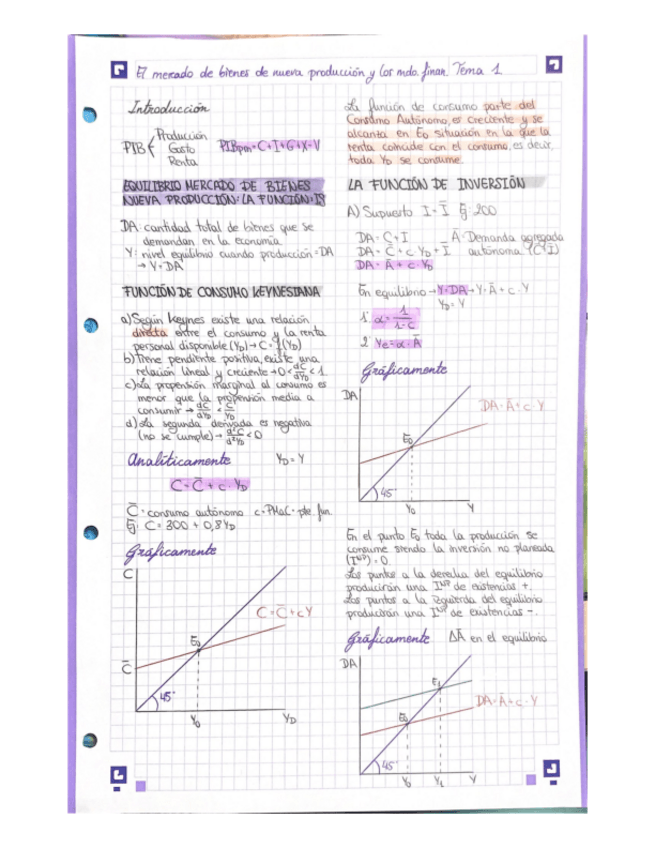 El mercado de bienes de nueva producción y los mdo. finan. Tema 1
Introducción
PIB { Producción
Gasto
Renta
PIBpm=C+I+G+X-V
EQUILIBRIO MERCADO DE BIENES
NUEVA PRODUCCIÓN: LA FUNCIÓN: IS
DA: cantidad total de bienes que se
demandan en la economía
Y: nivel equilibrio cuando producción=DA
→ Y=DA
FUNCIÓN DE CONSUMO KEYNESIANA
a) Según Keynes existe una relación
directa entre el consumo y la renta
personal disponible (YD)→C=f(YD)
b) Tiene pendiente positiva, existe una
relación lineal y creciente →0<dC/dYD<1
c) La propensión marginal al consumo es
menor que la propensión media a
consumir → dC/dYD < C/YD
d) La segunda derivada es negativa
(no se cumple)→ d²C/d²YD <0
Analíticamente YD=Y
C=C̄+c·YD
C̄=consumo autónomo c=PMaC=pte fun.
Ej: C=300+0,8YD
Gráficamente
C
C=C̄+cY
E0
C̄
45°
Y0 YD
La función de consumo parte del
Consumo Autónomo, es creciente y se
alcanza en E0 situación en la que la
renta coincide con el consumo, es decir,
toda YD se consume.
LA FUNCIÓN DE INVERSIÓN
A) Supuesto I=Ī Ej: 200
DA=C+I Ā=Demanda agregada
DA=C̄+c YD+Ī autónoma (C̄+Ī)
DA=Ā+c·YD
En equilibrio→Y=DA→Y=Ā+c·Y
YD=Y
1º α=1/1-c
2 Ye=α·Ā
Gráficamente
DA
DA=Ā+c·Y
E0
45°
Y0 Y
En el punto E0 toda la producción se
consume siendo la inversión no planeada
(I^NP)=0.
Los puntos a la derecha del equilibrio
producirán una I^NP de existencias +.
Los puntos a la izquierda del equilibrio
producirán una I^NP de existencias -.
Gráficamente ΔĀ en el equilibrio
DA
E1
DA=Ā+c·Y
E0
45°
Y0 Y1 Y